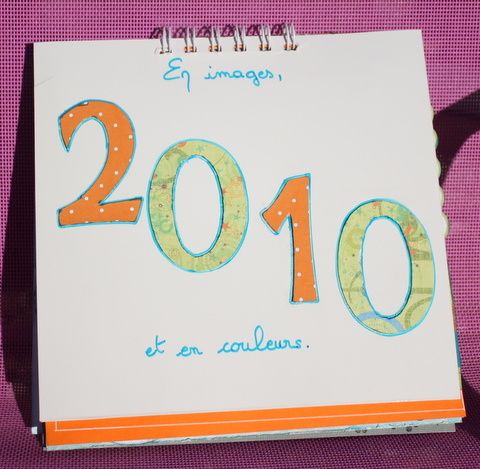 En images,
2010
et en couleurs.